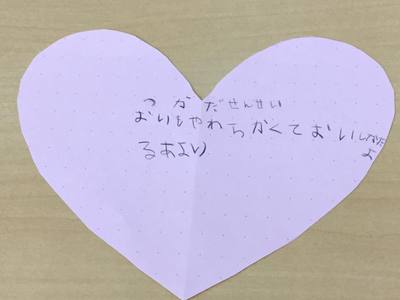 つかだせんせい
おいもやわらかくておいしかたよ
るあより